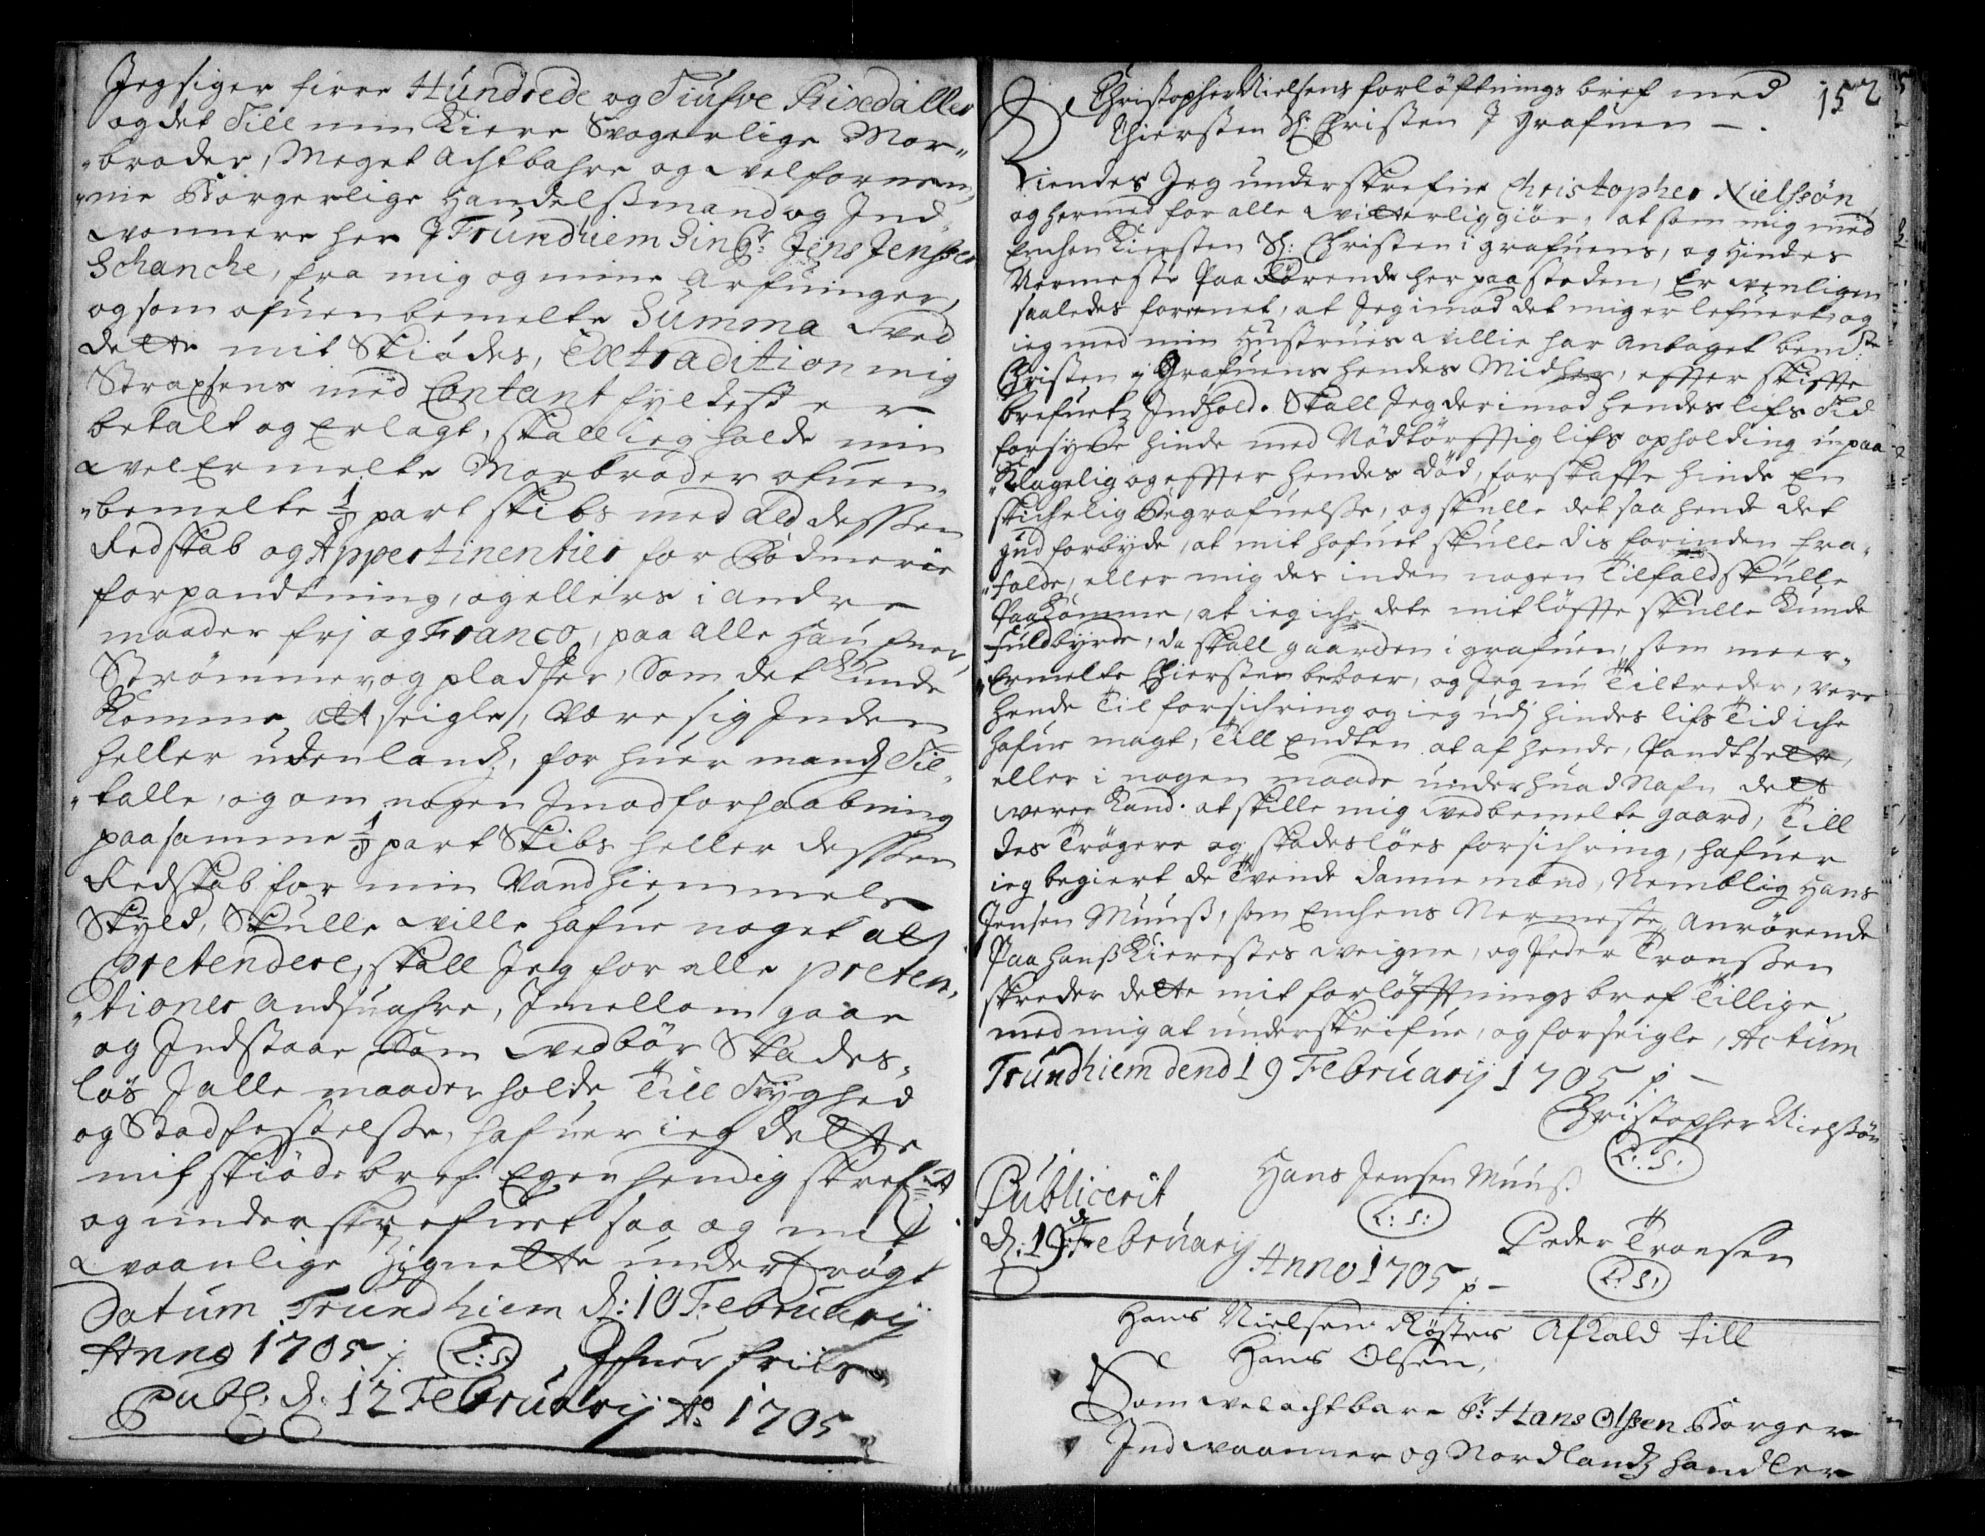 Jeg siger firre Hundrede og Tiufve Rixedaller
og det Till min Kiere Svogerlige Mor„
„broder, Meget Achtbahre og velfornem„
„me Borgerlige Handelsmand og Ind„
vonnere her J Trundhiem Sing.r Jens Jensen
Schanche, fra mig og mine Arfuinger,
og som ofuenbemelte Summa ved
dette mit Skiødes, Extradition mig
Strax sens med Contant fyldest er
betalt og Erlagt, skall ieg holde min
velErmelte Morbroder ofuen„
„bemelte 1/8 part skibs med all dessen
Redskab og Appertinentier for Bødmerie
forpandtning, og ellers i andre
maader frj og Franco, paa alle Haufner,
Strømmer, og pladser, Som det Kunde
Komme att seigle, være sig Inden
heller udenlandz, for huer mandz Til„
„talle, og om nogen Jmod forhaabning
paa samme 1/8 part Skibs heller dessen
Redskab for min Vandhiemmels
Skyld, Skulle ville hafue noget att
Pretendere, skall Jeg for alle preten„
„tioner andsuahre, Jmellom gaae
og Indstaae Som vedbør Skades„
løs J alle maader holde, Till Tryghed
og Stadfestelse, hafuer ieg dette
mit skiøde bref Egenhendig skrefuet
og underskrefuet saa og med
vaanlige Zignette undertrøgt
Datum Trundhiem d: 10 Februarij
Anno 1705 / L:S:
Publ: d. 12 Februarij Ao 1705
152
Christopher Nielsens forløftnings bref med
Chiersten Sl: Christen J Grafuen — .
Kiendes Jeg underskrefne Christopher Nielssøn
og hermed for alle vitterliggiør, at som mig med
Enchen Kiersten Sl: Christen i grafuens, og Hindes
Nermeste Paa Rørende her paa steden, Er venligen
saaledes forenet, at Jeg imod det mig er lefuert, og
ieg med min Hustrues villie har Antaget bem.te
Christen i Grafuens hendes Midler, effter skiffte
brefuetz Indhold. Skall Jeg derimod hendes lifs Tid
forsyne hinde med Nødtørfftig lifs opholding upaa
„Klagelig og effter hendes død, forskaffe hinde En
skichelig Begrafuelse, og skulle det saa hende det
gud forbyde, at mit hafuet skulle dis forinden fra„
„falde, eller mig des inden nogen Tilfald skulle
Paakomme, at ieg iche dete mit løffte skulle Kunde
Fuldbyrde, da skall gaarden i grafuen, som meer„
„Ermelte Chiersten beboer, og Jeg nu Tiltreder, vere
hende Til forsichring og ieg udj hindes lifs Tid iche
hafue magt, Till Endten at afhende, Pandtsette,
eller i nogen maade under huad Nafn dett
være Kand. at skille mig ved bemelte gaard, Till
des Trøgere og skadesløes forsichring, hafuer
ieg begiert de Tvende danne mænd, Nemblig Hans
Jensen Muuss, som Enchens Nermeste Anrørende
Paa hans Kierestes veigne, og Peder Tronssen
skreder dette mit forløfftnings bref Tillige
med mig at underskrifue, og forseigle, Actum
Trundhiem dend 19 Februarij 1705 p. —
Christopher Nielssøn
L:S:
Hans Jensen Muuss
L:S:
Publicerit
d: 19de Februarij
Anno 1705 p —
Peder Tronsen
L:S:
Hans Nielsen Røsters Afkald till
Hans Olsen,
Som velachtbare Sr: Hans Olssen Borger
Indvaanner og Nordlandz handler